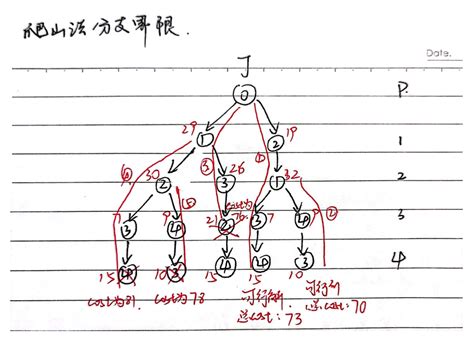 爬山法/分支界限.
Date.
J
P.
0
29 1 2 19 1
30 2 3 26 1 32 2
3 9 4 21 2 3 7 4 3
15 4 10 3 15 4 15 4 10 3 4
cost为81. cost为78 可行解 总cost:73 可行解 总cost:70